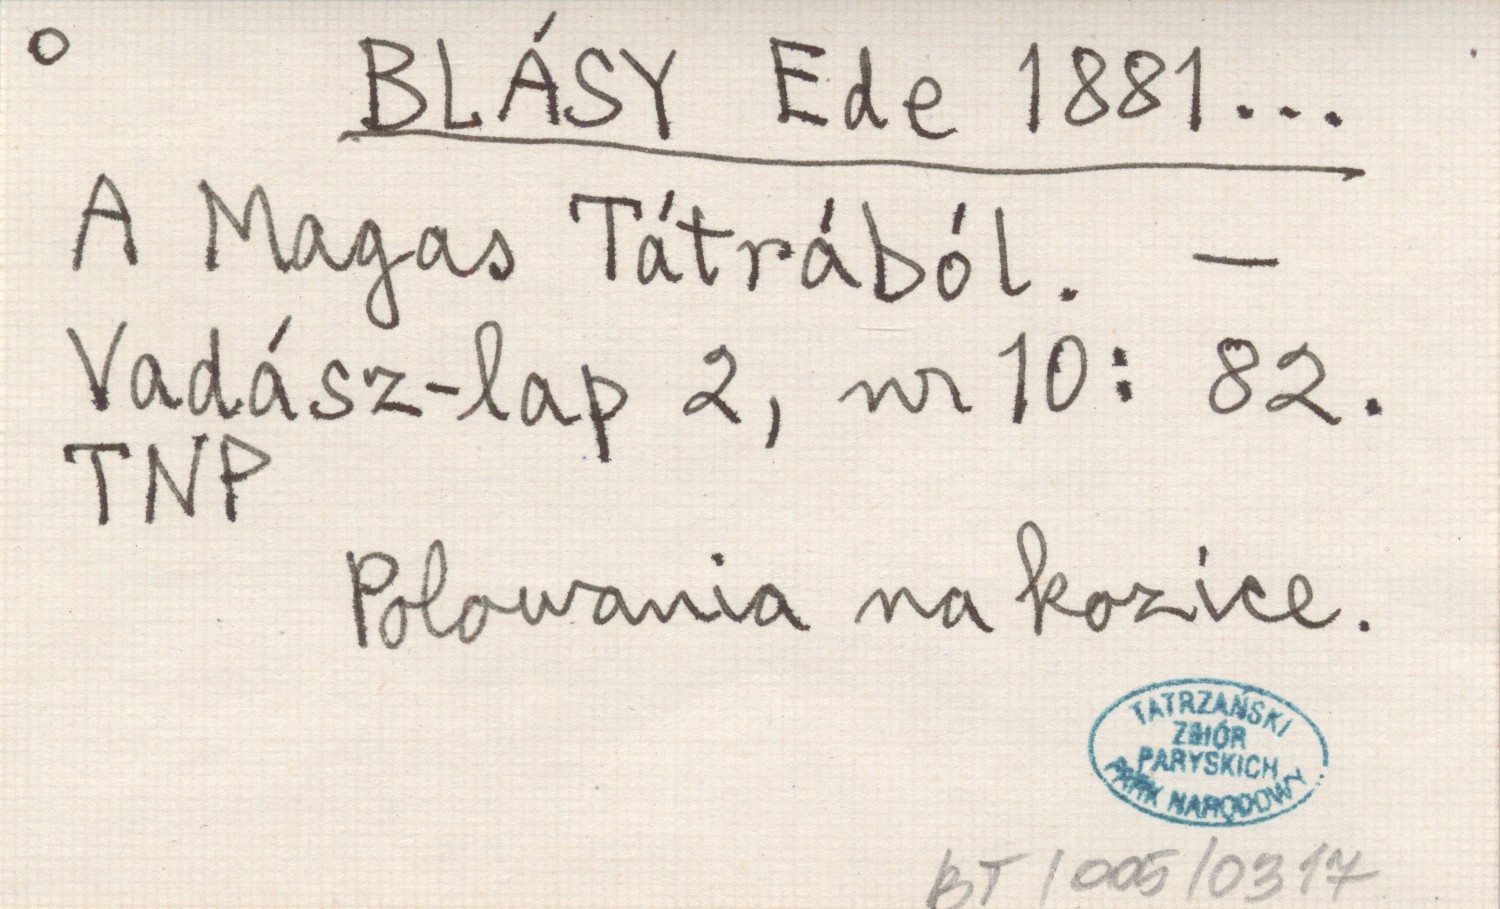 BLÁSY Ede 1881...
A Magas Tátrából. —
Vadász-lap 2, nr 10: 82.
TNP
Polowania na kozice.
TATRZAŃSKI
ZBIÓR
PARYSKICH
PARK NARODOWY
BT/005/0317